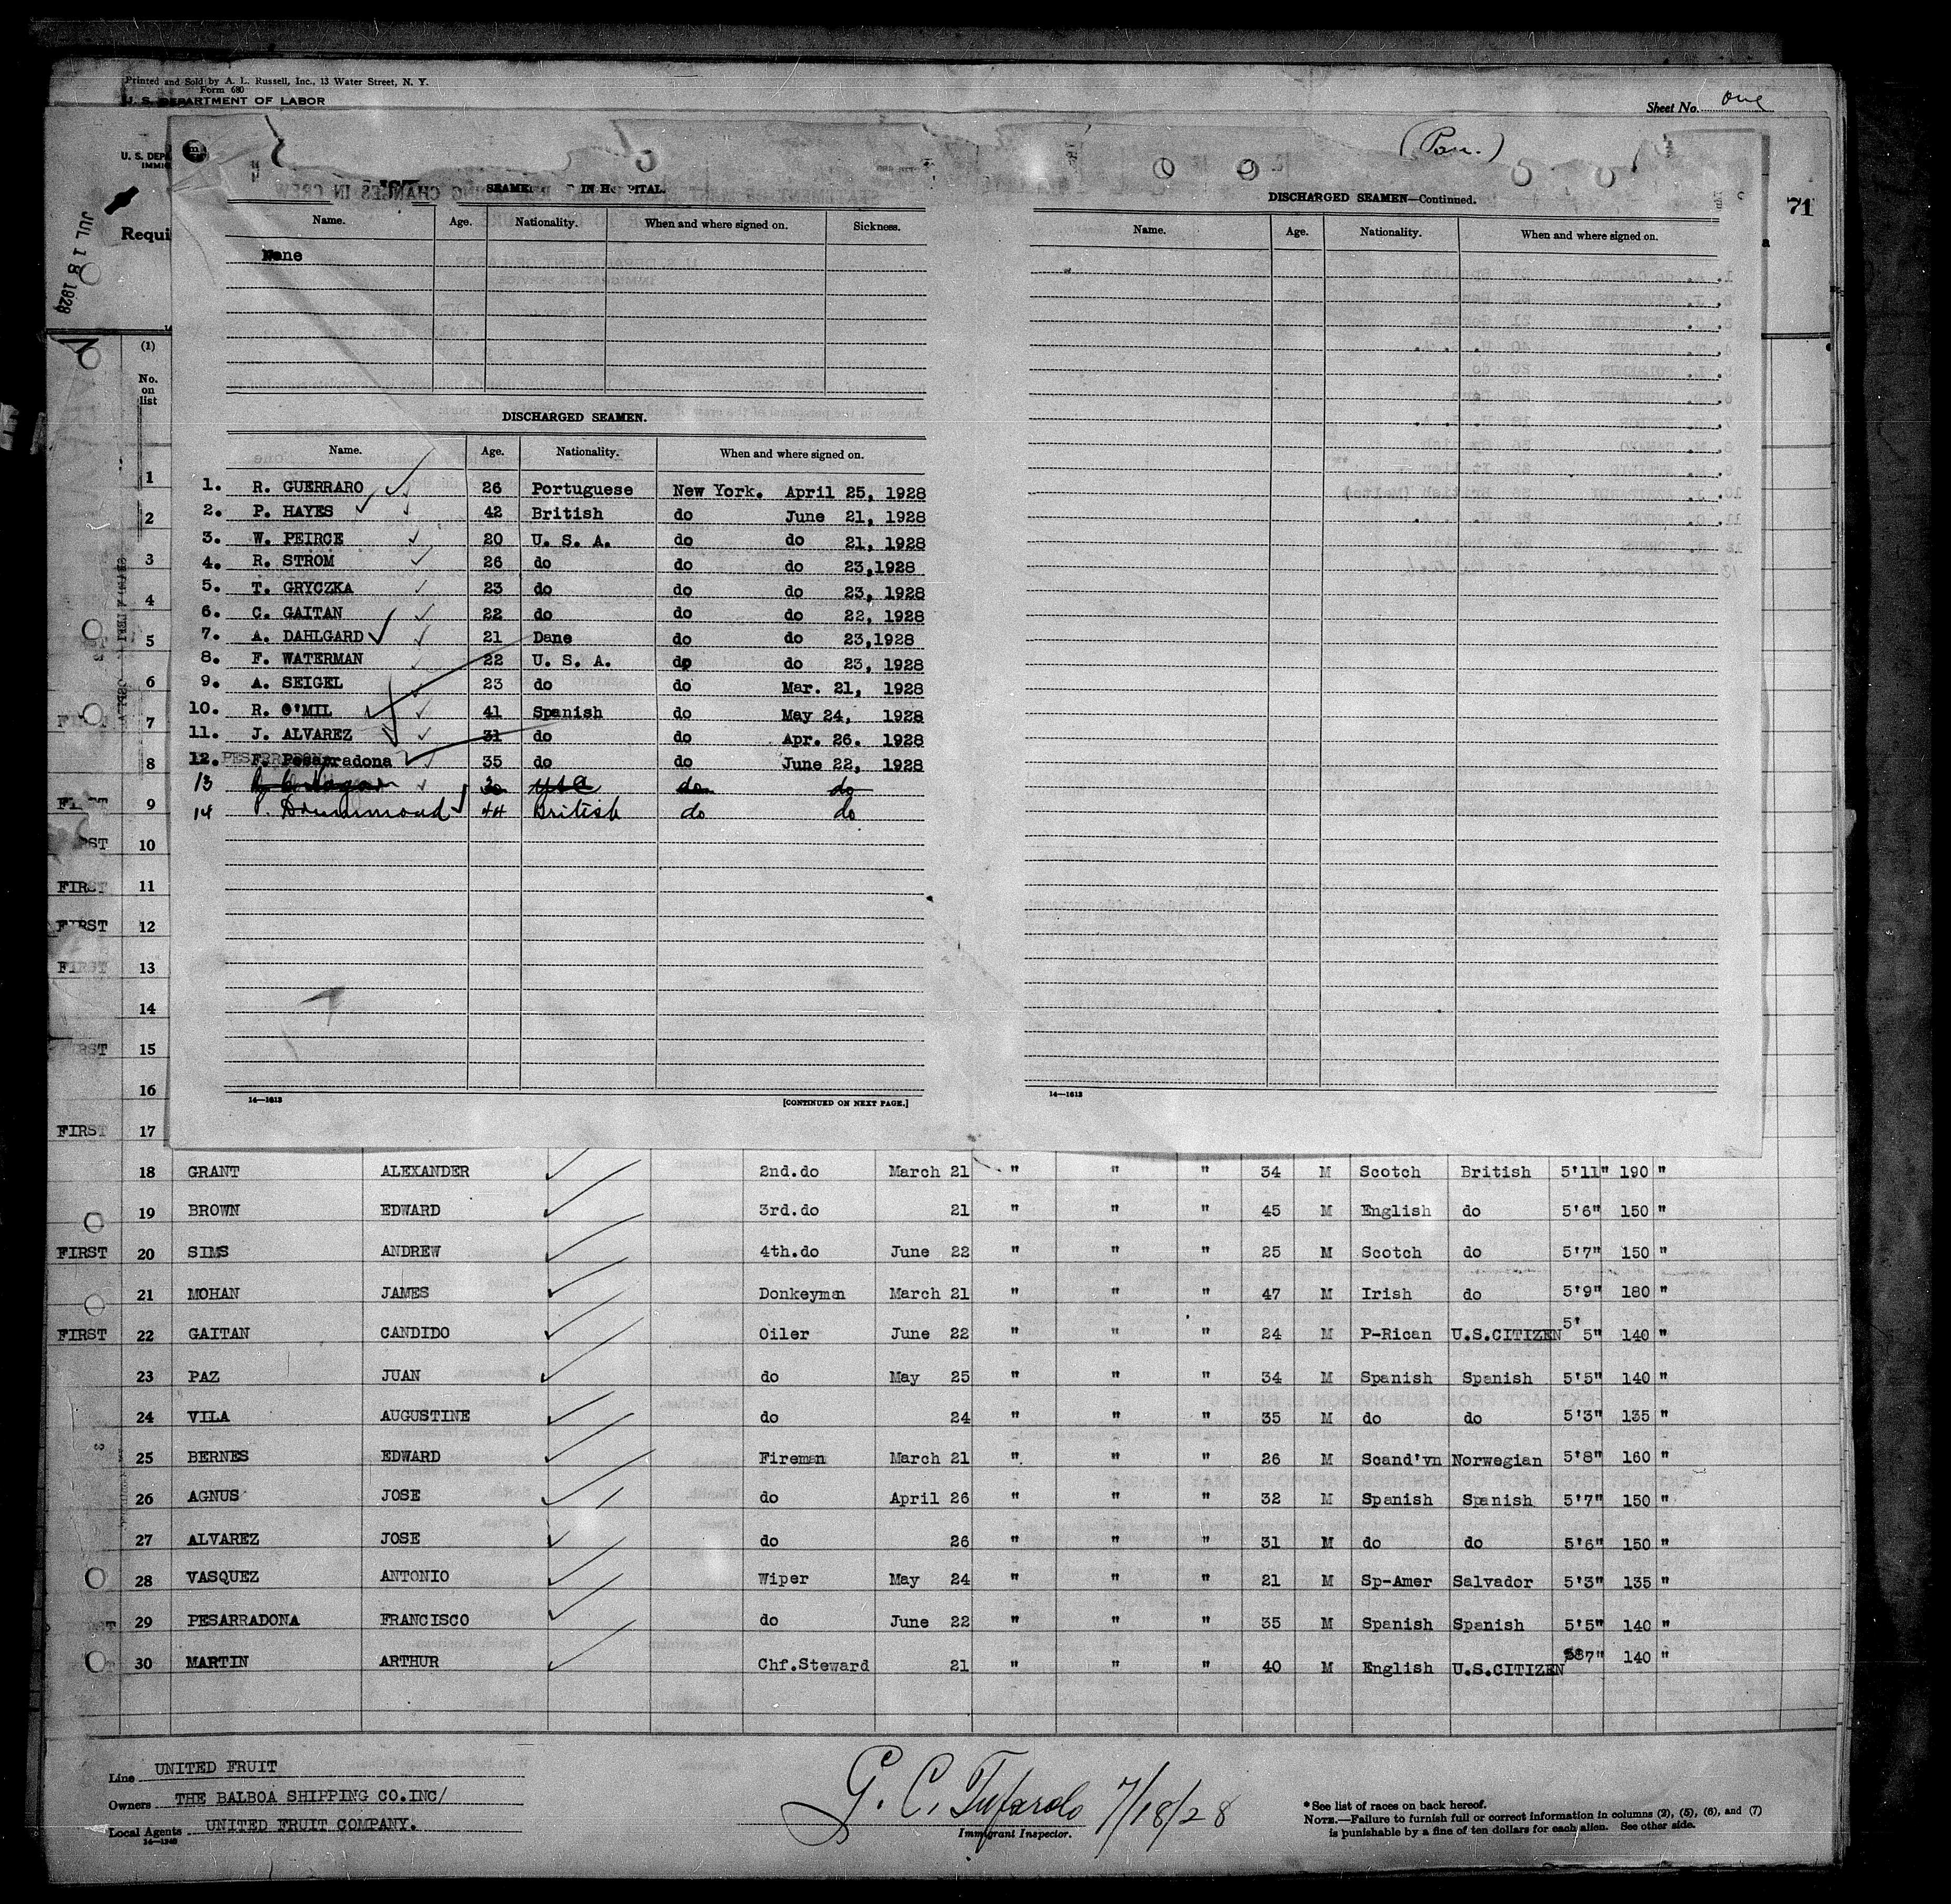 Printed and Sold by A. L. Russell, Inc., 13 Water Street, N. Y.
Form 680
U. S. DEPARTMENT OF LABOR
Sheet No. one
(Pan.)
U. S. DEPA
IMMIG
JUL 18 1928
Requi
71
SEAMEN IN HOSPITAL.
Name. Age. Nationality. When and where signed on. Sickness.
None
DISCHARGED SEAMEN—Continued.
Name. Age. Nationality. When and where signed on.
DISCHARGED SEAMEN.
Name. Age. Nationality. When and where signed on.
1. R. GUERRARO 26 Portuguese New York. April 25, 1928
2. P. HAYES 42 British do June 21, 1928
3. W. PEIRCE 20 U. S. A. do do 21, 1928
4. R. STROM 26 do do do 23,1928
5. T. GRYCZKA 23 do do do 23, 1928
6. C. GAITAN 22 do do do 22, 1928
7. A. DAHLGARD 21 Dane do do 23,1928
8. F. WATERMAN 22 U. S. A. do do 23, 1928
9. A. SEIGEL 23 do do Mar. 21, 1928
10. R. O'MIL 41 Spanish do May 24, 1928
11. J. ALVAREZ 31 do do Apr. 26. 1928
12. F. Pesarradona 35 do do June 22, 1928
13 USA do do
14 P. Drummond 44 British do do
14—1613
[CONTINUED ON NEXT PAGE.]
14—1613
(1)
No. on list
1
2
3
4
5
6
FIRST 7
8
FIRST 9
FIRST 10
FIRST 11
FIRST 12
FIRST 13
14
FIRST 15
16
FIRST 17
18 GRANT ALEXANDER 2nd.do March 21 " " " 34 M Scotch British 5'11" 190 "
19 BROWN EDWARD 3rd.do 21 " " " 45 M English do 5'6" 150 "
FIRST 20 SIMS ANDREW 4th.do June 22 " " " 25 M Scotch do 5'7" 150 "
21 MOHAN JAMES Donkeyman March 21 " " " 47 M Irish do 5'9" 180 "
FIRST 22 GAITAN CANDIDO Oiler June 22 " " " 24 M P-Rican U.S.CITIZEN 5' 5" 140 "
23 PAZ JUAN do May 25 " " " 34 M Spanish Spanish 5'5" 140 "
24 VILA AUGUSTINE do 24 " " " 35 M do do 5'3" 135 "
25 BERNES EDWARD Fireman March 21 " " " 26 M Scand'vn Norwegian 5'8" 160 "
26 AGNUS JOSE do April 26 " " " 32 M Spanish Spanish 5'7" 150 "
27 ALVAREZ JOSE do 26 " " " 31 M do do 5'6" 150 "
28 VASQUEZ ANTONIO Wiper May 24 " " " 21 M Sp-Amer Salvador 5'3" 135 "
29 PESARRADONA FRANCISCO do June 22 " " " 35 M Spanish Spanish 5'5" 140 "
30 MARTIN ARTHUR Chf.Steward 21 " " " 40 M English U.S.CITIZEN 7" 140 "
Line UNITED FRUIT
Owners THE BALBOA SHIPPING CO.INC/
Local Agents UNITED FRUIT COMPANY.
14—1240
G. C. Tufarolo 7/18/28
Immigrant Inspector.
*See list of races on back hereof.
NOTE.—Failure to furnish full or correct information in columns (2), (5), (6), and (7)
is punishable by a fine of ten dollars for each alien. See other side.